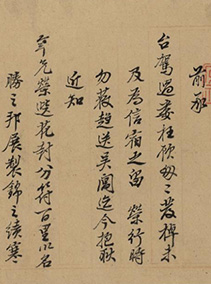 前承
台駕過婁枉顧匆匆發棹未
及為信宿之留榮行時
勿獲趨送吳閶迄今抱歉
近知
年兄榮選花封分符百里以名
勝之邦展製錦之績寒